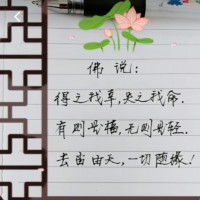 佛说:
得之我幸,失之我命,
有则是福,无则是轻,
去留由天,一切随缘!